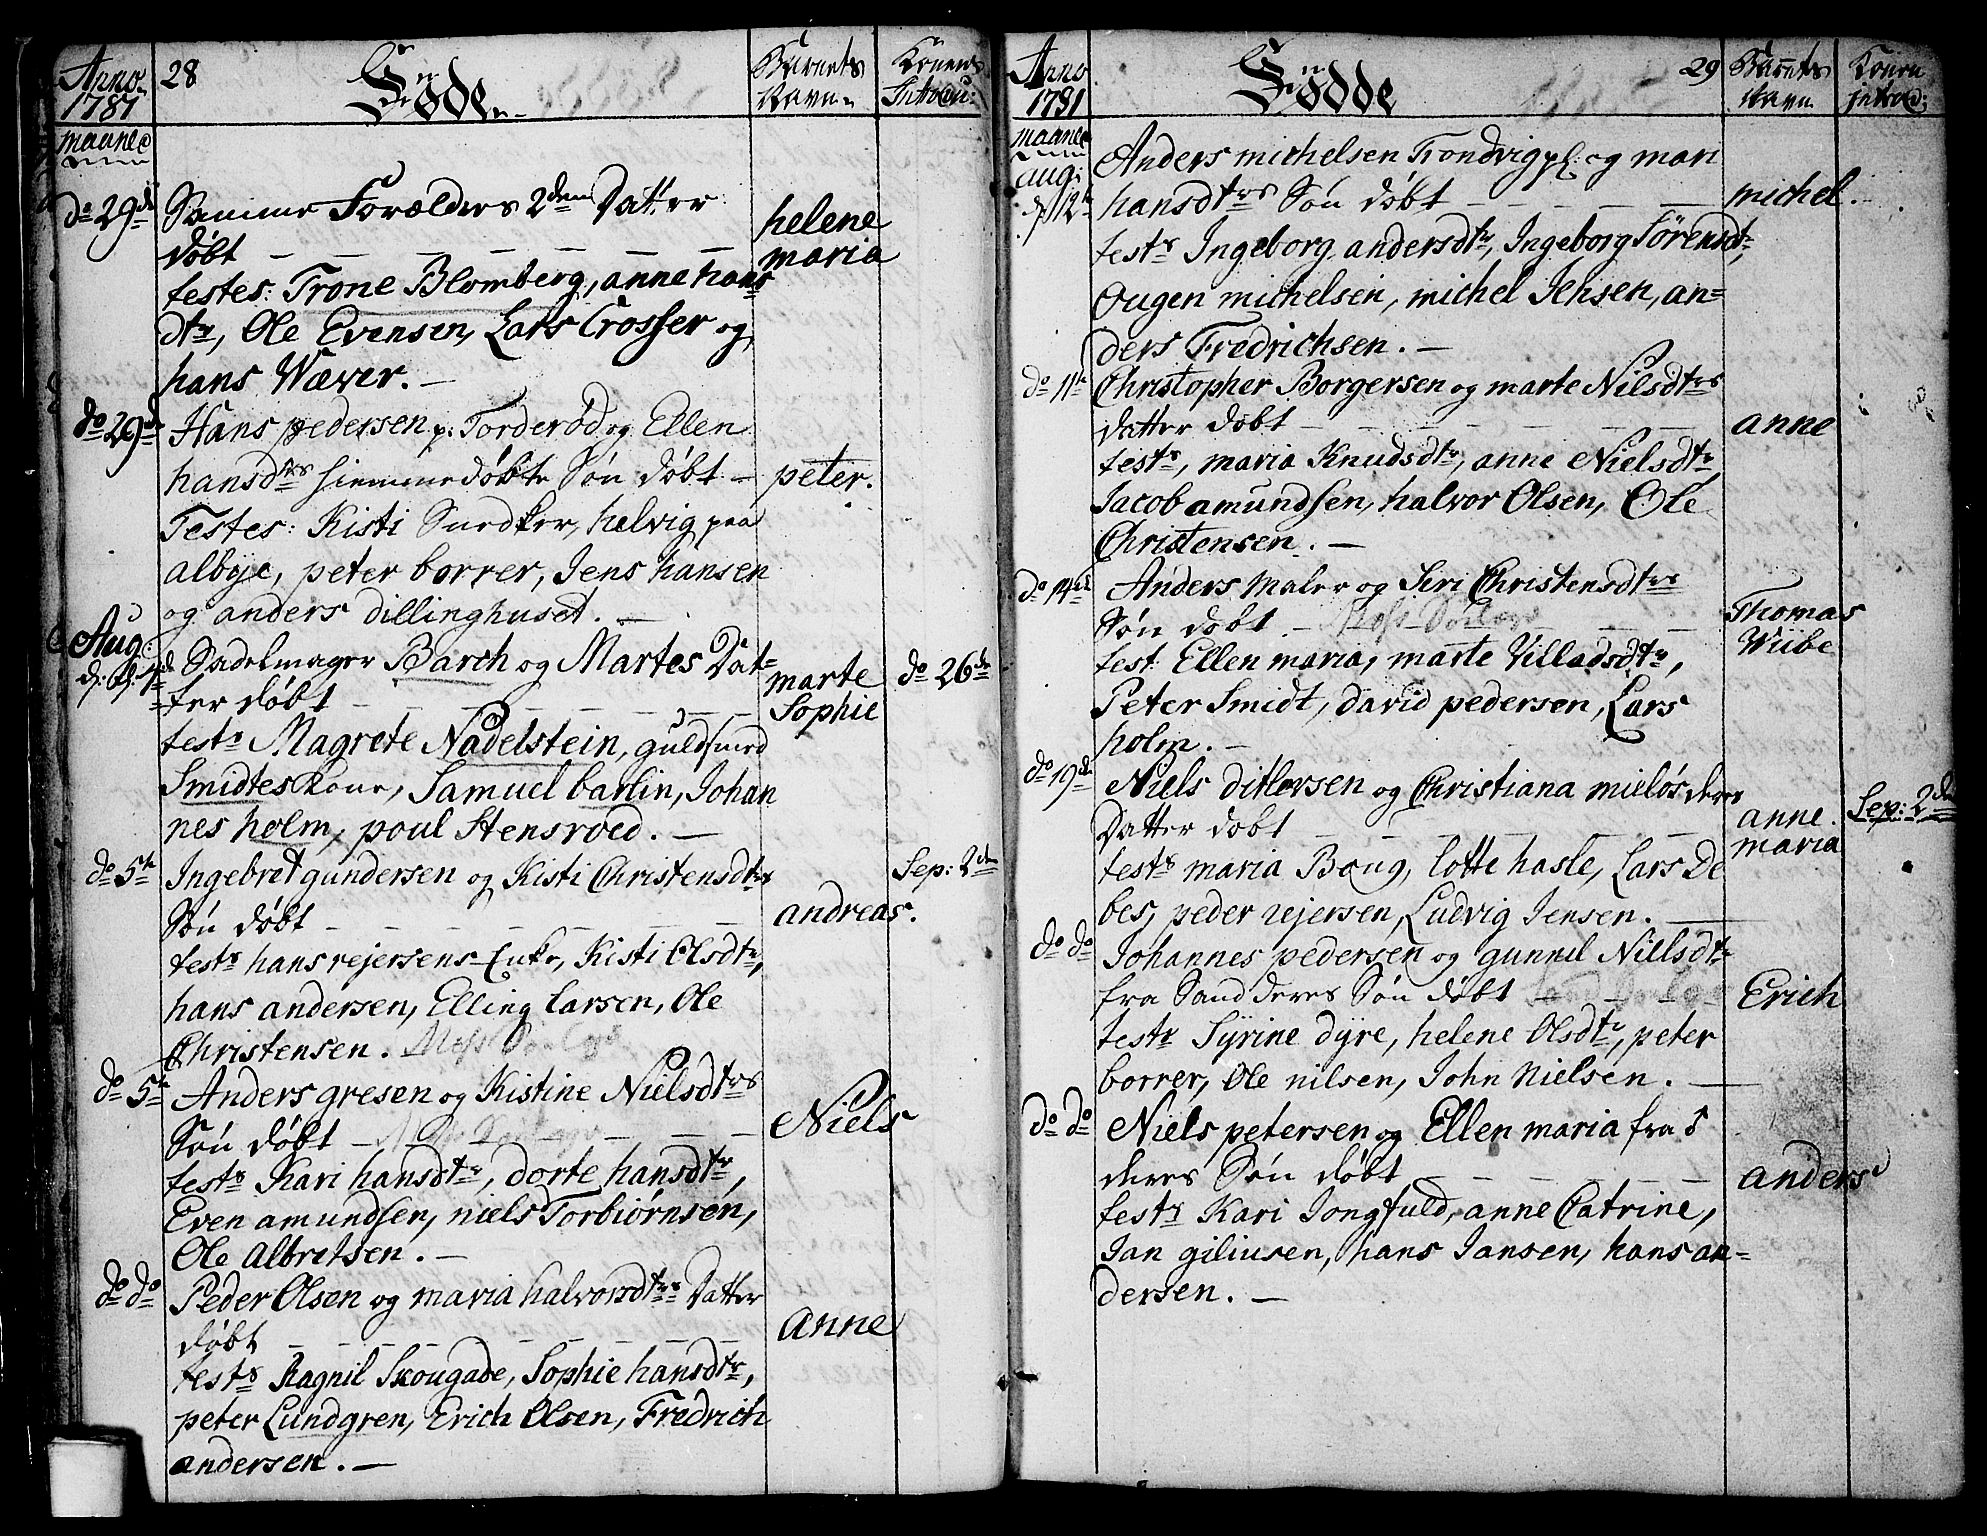 Anno 1781
28
Födde
Barnets Navn
Konens Introdu:
maaned
do 29de
Samme Forælders 2den Datter
døbt
helene
maria
testes: Trone Blomberg, anne hans
dtr, Ole Evensen, Lars Crosser og
hans Wæver.
do 29de
Hans pedersen p: Torderød og Ellen
hansdtrs hiemmedøbte Søn døbt
peter.
Testes: Kisti Snedker, helvig paa
albye, peter borrer, Jens hansen
og anders dillinghuset.
Aug:
Sadelmager Barch og Martes Dat=
ter døbt
marte
Sophie
do 26de
testr Magrete Nadelstein, guldsmed
Smidtes Kone, Samuel barlin, Johan
nes holm, poul Stensroed.
do 5te
Ingebret gundersen og Kisti Christensdtrs
Søn døbt
andreas.
Sep: 2den
testr hans rejersens Enke, Kisti Olsdtr,
hans andersen, Elling Larsen, Ole
Christensen.
do 5te
Anders gresen og Kistine Nielsdtrs
Søn døbt
Niels
testr Kari hansdtr, dorte hansdtr,
Even amundsen, niels Torbiørnsen,
Ole Albretsen.
do do
Peder Olsen og maria halvorsdtrs Datter
døbt
anne
testr Ragnil Skougade, Sophie hansdtr,
peter Lundgren, Erich Olsen, Fredrich
andersen.
Anno 1781
Födde
29
Barnets Navn
Konens introd:
maaned
aug:
d 12te
Anders michelsen Trondvig pl: og mari
hansdtrs Søn døbt
michel.
testr Ingeborg andersdtr, Ingeborg Sörensdtr,
Ougen michelsen, michel Jensen, an=
ders Fredrichsen.
do 11te
Christopher Borgersen og marte Nilsdtrs
Datter døbt
anne
testr, maria Knudsdtr, anne Nielsdtr,
Jacob amundsen, halvor Olsen, Ole
Christensen.
do 14de
Anders Maler og Siri Christensdtrs
Søn døbt
Thomas
Wiibe
test: Ellen maria, marte Villadsdtr,
Peter Smidt, david pedersen, Lars
holm.
do 19de
Niels ditlevsen og Christiana mieløs deres
Datter døbt
anne
maria
Sep: 2den
testr maria Boug, Lotte hasle, Lars De
bes, peder rejersen, Ludvig Jensen.
do do
Johannes pedersen og gunnil Nillsdtr
fra Sand deres Søn døbt
Erich
testr Syrine dyre, helene Olsdtr, peter
borrer, Ole nilsen, John Nielsen.
do do
Niels petersen og Ellen maria fra
deres Søn døbt
anders
testr Kari Jongfuld, anne Catrine,
Jan giliusen, hans Jansen, hans an=
dersen.